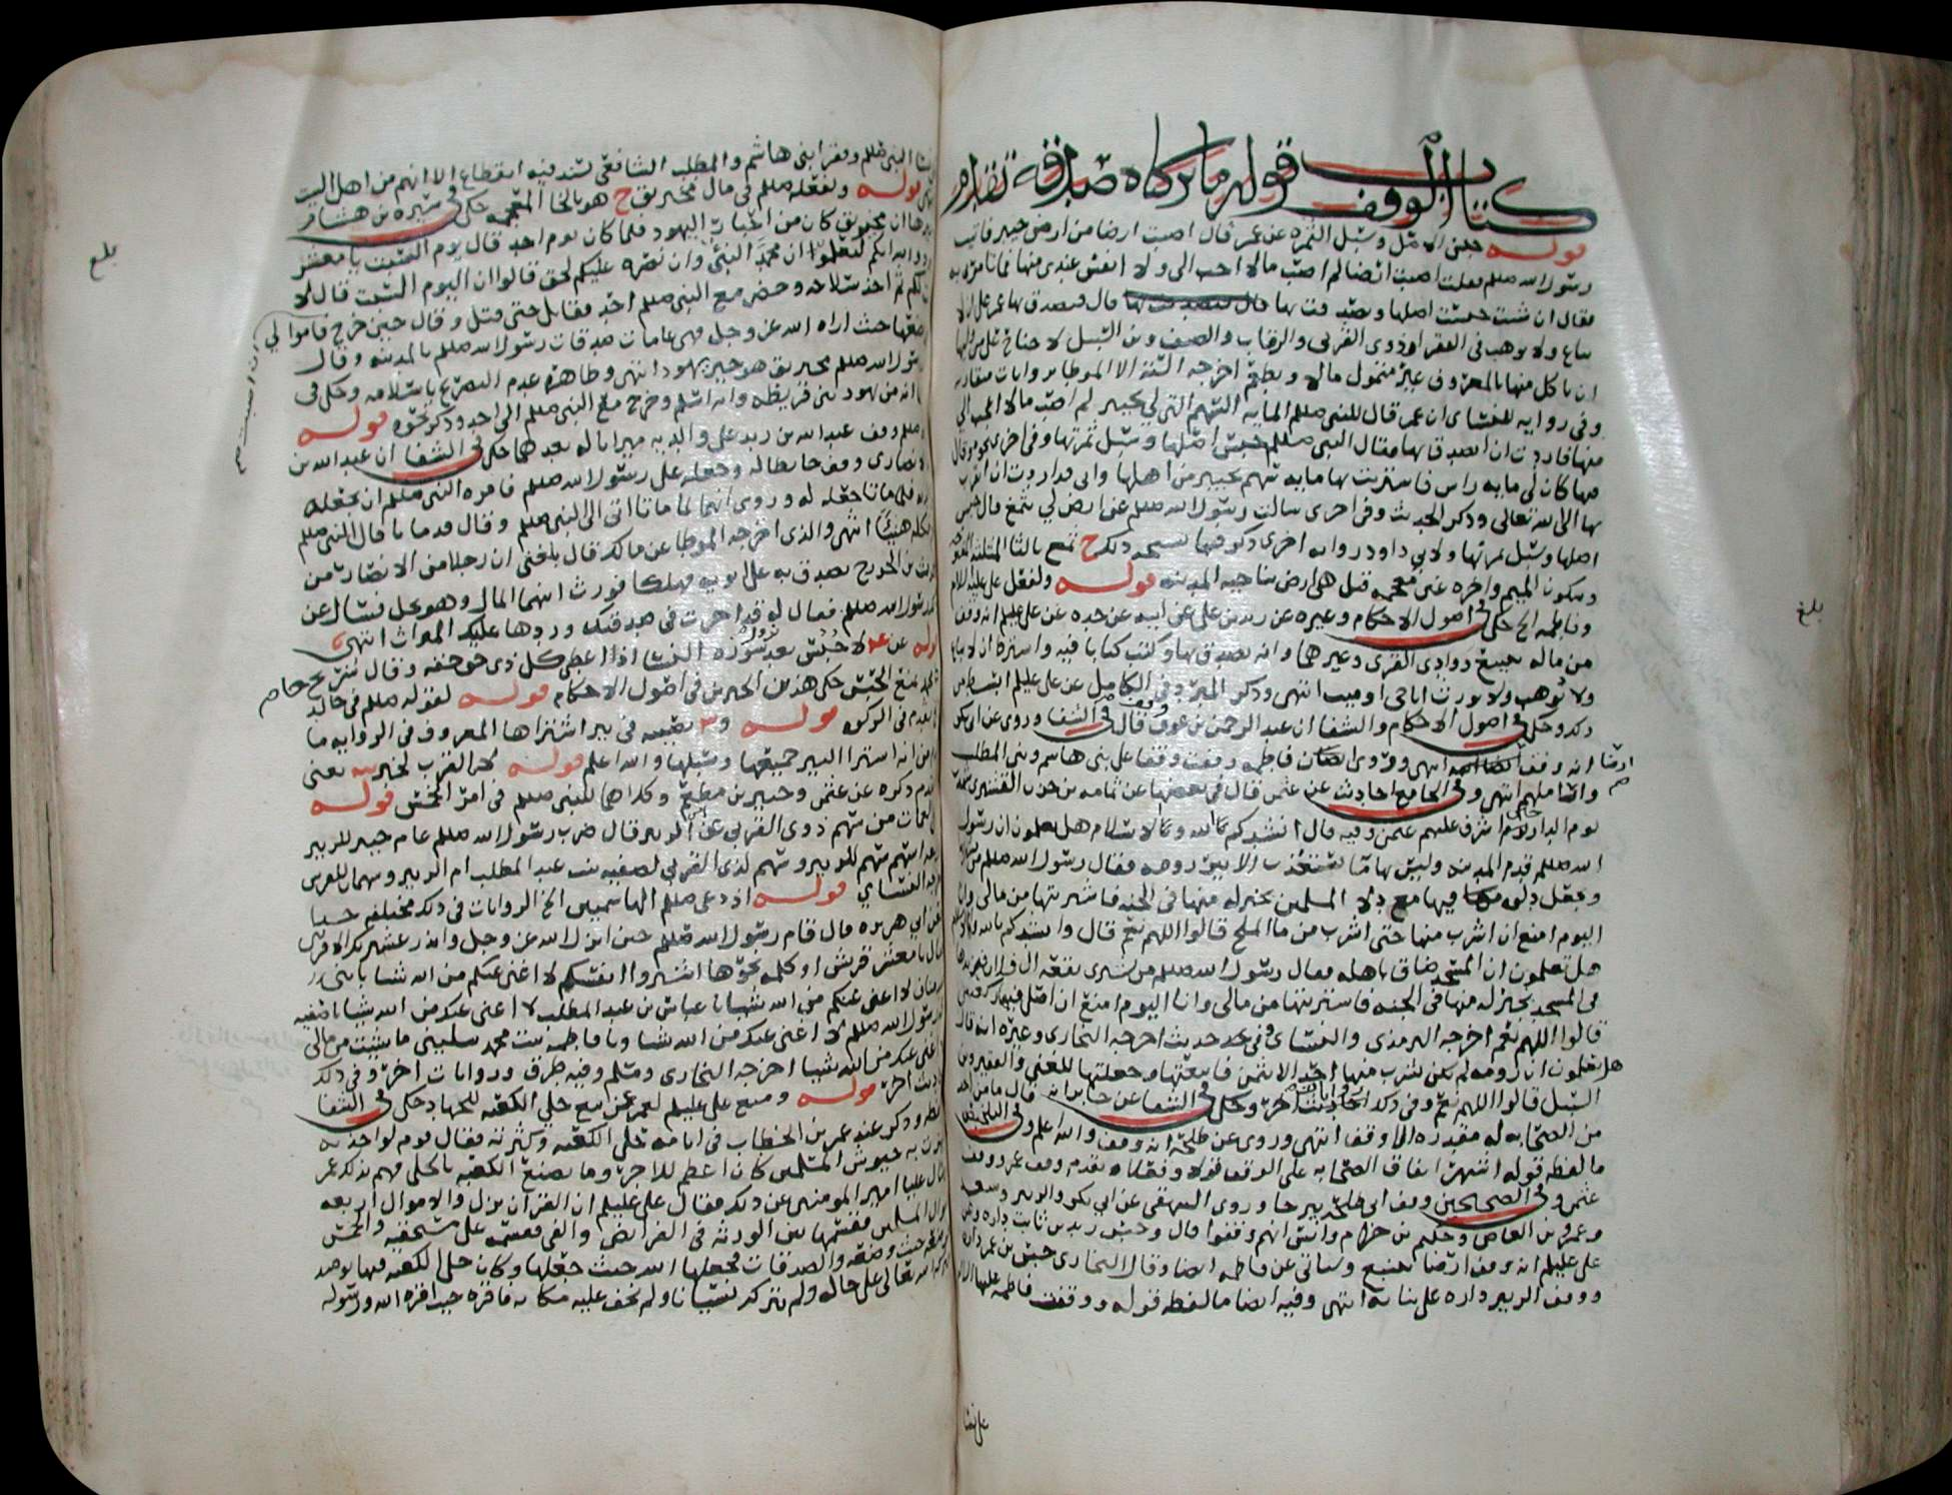 كتاب الوقف قوله ما تركناه صدقة تقدم
قوله حبس الاصل وسبل الثمره عن عمر قال اصبت ارضا من ارض خيبر فاتيت
رسول الله صللم فقلت اصبت ارضا لم اصب مالا احب الي ولا انفس عندي منها فما تامرني به
فقال ان شئت حبست اصلها وتصدقت بها قال فتصدق بها عمر على ان لا
تباع ولا توهب في الفقرا وذوي القربى والرقاب والضيف وبن السبيل لا جناح على من وليها
ان ياكل منها بالمعروف غير متمول مالا ويطعم اخرجه الستة الا الموطا بروايات متقاربه
وفي روايه للنسائي ان عمر قال للنبي صللم المايه السهم التي لي بخيبر لم اصب مالا احب الي
منها قد اردت ان اتصدق بها فقال النبي صللم احبس اصلها وسبل ثمرتها وفي اخرى
فيها كان لي مايه راس فاشتريت بها مايه سهم بخيبر من اهلها واني قد اردت ان اتقرب
بها الى الله تعالى وذكر الحديث وفي اخرى سالت رسول الله صللم عن ارض لي بثمغ قال احبس
اصلها وسبل ثمرتها ولابي داود روايه اخرى ذكر فيها نسخه ذلك ح ثمغ بالثا المثلثه المفتوحه
وسكون الميم واخره غين معجمه قيل هي ارض بناحيه المدينه قوله ولفعل علي عليه السلام
وفاطمه الخ حكى في اصول الاحكام وغيره عن زيد بن علي عن ابيه عن جده عن علي عليلم انه وقف
من ماله بينبع ووادي القرى وغيرهما وانه تصدق بها وكتب كتابا فيه واشترط ان لا يباع
ولا توهب ولا تورث انا حي او ميت انتهى وذكر المبرد في الكامل عن علي عليلم
ذكره وحكى في اصول الاحكام والشفا ان عبد الرحمن بن عوف وقف قال في الشفا وروي عن ابي بكر
ايضا انه وقف انتهى وروي ان فاطمه وقفت وقفا على بني هاشم وبني المطلب
وانها منهم انتهى وفي الجامع احاديث عن عثمن قال في بعضها عن ثمامه بن حزن القشيري
يوم الدار حين اشرف عليهم عثمن وفيه قال انشدكم بالله وبالاسلام هل تعلمون ان رسول
الله صللم قدم المدينه وليس بها ما يستعذب الا بير رومه فقال رسول الله صللم من يشتريها
ويجعل دلوه فيها مع دلا المسلمين بخير له منها في الجنه فاشتريتها من مالي وانا
اليوم امنع ان اشرب منها حتى اشرب من ما الملح قالوا اللهم نعم قال وانشدكم بالله والاسلام
هل تعلمون ان المسجد ضاق باهله فقال رسول الله صللم من يشتري بقعه ال فلان فيزيدها
في المسجد بخير له منها في الجنه فاشتريتها من مالي وانا اليوم امنع ان اصلي فيها ركعتين
قالوا اللهم نعم اخرجه الترمذي والنسائي وفي حديث اخرجه البخاري وغيره انه قال
هل تعلمون ان رومه لم يكن يشرب منها احد الا بثمن فابتعتها وجعلتها للغني والفقير وبن
السبيل قالوا اللهم نعم وفي ذلك احاديث وروايات اخر وحكى في الشفا عن جابر انه قال ما من احد
من الصحابه له مقدره الا وقف انتهى وروي عن طلحه انه وقف والله اعلم وفي التلخيص
ما لفظه قوله اشتهر اتفاق الصحابه على الوقف قولا وفعلا تقدم وقف عمر ووقف
عثمن وفي الصحيحين وقف ابي طلحه بيرحا وروى البيهقي عن ابي بكر والزبير وسعيد
وعمرو بن العاص وحكيم بن حزام وانس انهم وقفوا قال وحبس زيد بن ثابت داره
علي عليلم انه وقف ارضا بينبع وسياتي عن فاطمه ايضا وقال البخاري حبس بن عمر داره
ووقف الزبير داره على بناته انتهى وفيه ايضا ما لفظه قوله ووقفت فاطمه عليها السلام
على نسا
بلغ
نسا النبي صللم وفقرا بني هاشم والمطلب الشافعي بسند فيه انقطاع الا انهم من اهل البيت
قوله ولفعله صللم في مال مخيريق ح هو بالخا المعجمه حكى في سيره بن هشام
ان مخيريق كان من احبار اليهود فلما كان يوم احد قال يوم السبت يا معشر
والله انكم لتعلمون ان محمدا لنبي وان نصره عليكم لحق قالوا ان اليوم السبت قال لا
لكم ثم اخذ سلاحه وحضر مع النبي صللم احد فقاتل حتى قتل وقال حين خرج فاموالي
يضعها حيث اراه الله عز وجل فهي عامة صدقات رسول الله صللم بالمدينه وقال
رسول الله صللم مخيريق هو خير يهود انتهى وظاهره عدم التصريح باسلامه وحكي في
انه من يهود بني قريظه وانه اسلم وخرج مع النبي صللم الى احد وذكر نحوه قوله
صللم وقف عبدالله بن زيد على والديه ميراثا له بعدهما حكى في الشفا ان عبدالله بن
الانصاري وقف حايطا له وجعله على رسول الله صللم فامره النبي صللم ان يجعله
فلما ماتا جعله له وروي انهما لما ماتا اتى الى النبي صللم وقال قد ماتا قال النبي صللم
كله هنيئا انتهى والذي اخرجه الموطا عن مالك قال بلغني ان رجلا من الانصار من
الحرث بن الخزرج تصدق به على ابويه فهلكا فورث ابنهما المال وهو نخل فسال عن
رسول الله صللم فقال له قد اجرت في صدقتك وردها عليك الميراث انتهى
قوله لا حبس بعد سورة النسا اذ اعطى كل ذي حق حقه وقال شريح جا محمد
بمنع الحبس حكى هذين الخبرين في اصول الاحكام قوله لقوله صللم في خالد
تقدم في الزكوه قوله تعيينه في بير اشتراها المعروف في الروايه ما
من انه اشترا البير جميعها وسبلها والله اعلم قوله كخبر يعني
تقدم ذكره عن عثمن وجبير بن مطعم وكلامهما للنبي صللم في امر الخمس قوله
من سهم ذوي القربى عن بن الزبير قال ضرب رسول الله صللم عام خيبر للزبير
اربعة اسهم سهم للزبير وسهم لذي القربى لصفيه بنت عبد المطلب ام الزبير وسهمان للفرس
اخرجه النسائي قوله اذ دعى صللم الهاشميين الخ الروايات في ذلك مختلفه
عن ابي هريره قال قام رسول الله صللم حين انزل الله عز وجل وانذر عشيرتك الاقربين
قال يا معشر قريش او كلمه نحوها اشتروا انفسكم لا اغني عنكم من الله شيا يا بني عبد
مناف لا اغني عنكم من الله شيا يا عباس بن عبد المطلب لا اغني عنك من الله شيا يا صفيه
عمة رسول الله صللم لا اغني عنك من الله شيا ويا فاطمه بنت محمد سليني ما شيت من مالي
لا اغني عنك من الله شيا اخرجه البخاري ومسلم وفيه طرق وروايات اخر وفي ذلك
احاديث اخر قوله ومنع علي عليلم لعمر عن بيع حلي الكعبه للجهاد حكى في الشفا
لفظه وذكر عند عمر بن الخطاب في ايامه حلي الكعبه وكثرته فقال قوم لو اخذته
فجهزت به جيوش المسلمين كان اعظم للاجر وما تصنع الكعبه بالحلي فهم بذلك عمر
وسال عليا امير المومنين عن ذلك فقال علي عليلم ان القران نزل والاموال اربعه
اموال المسلمين فقسمها بين الورثه في الفرايض والفي فقسمه على مستحقيه والخمس
فوضعه حيث وضعه والصدقات فجعلها الله حيث جعلها وكان حلي الكعبه فيها يوميذ
فتركه الله تعالى على حاله ولم يتركه نسيانا ولم يخف عليه مكانه فاقره حيث اقره الله ورسوله
بلغ